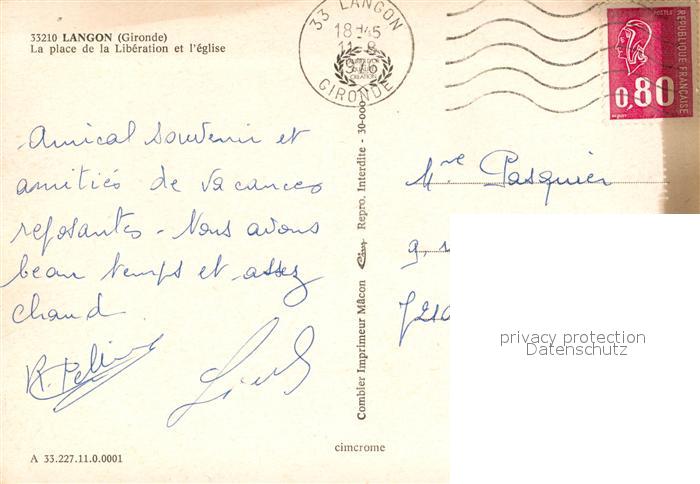 33210 LANGON (Gironde)
La place de la Libération et l'église
33 LANGON
18H45
11-8
GIRONDE
POSTES
REPUBLIQUE FRANÇAISE
0,80
Amical souvenir et
amitiés de vacances
reposantes - Nous avons
beau temps et assez
chaud
Combier Imprimeur Mâcon Repro. Interdite - 30-000
Mme Pasquier
9, r
7210
privacy protection
Datenschutz
cimcrome
A 33.227.11.0.0001